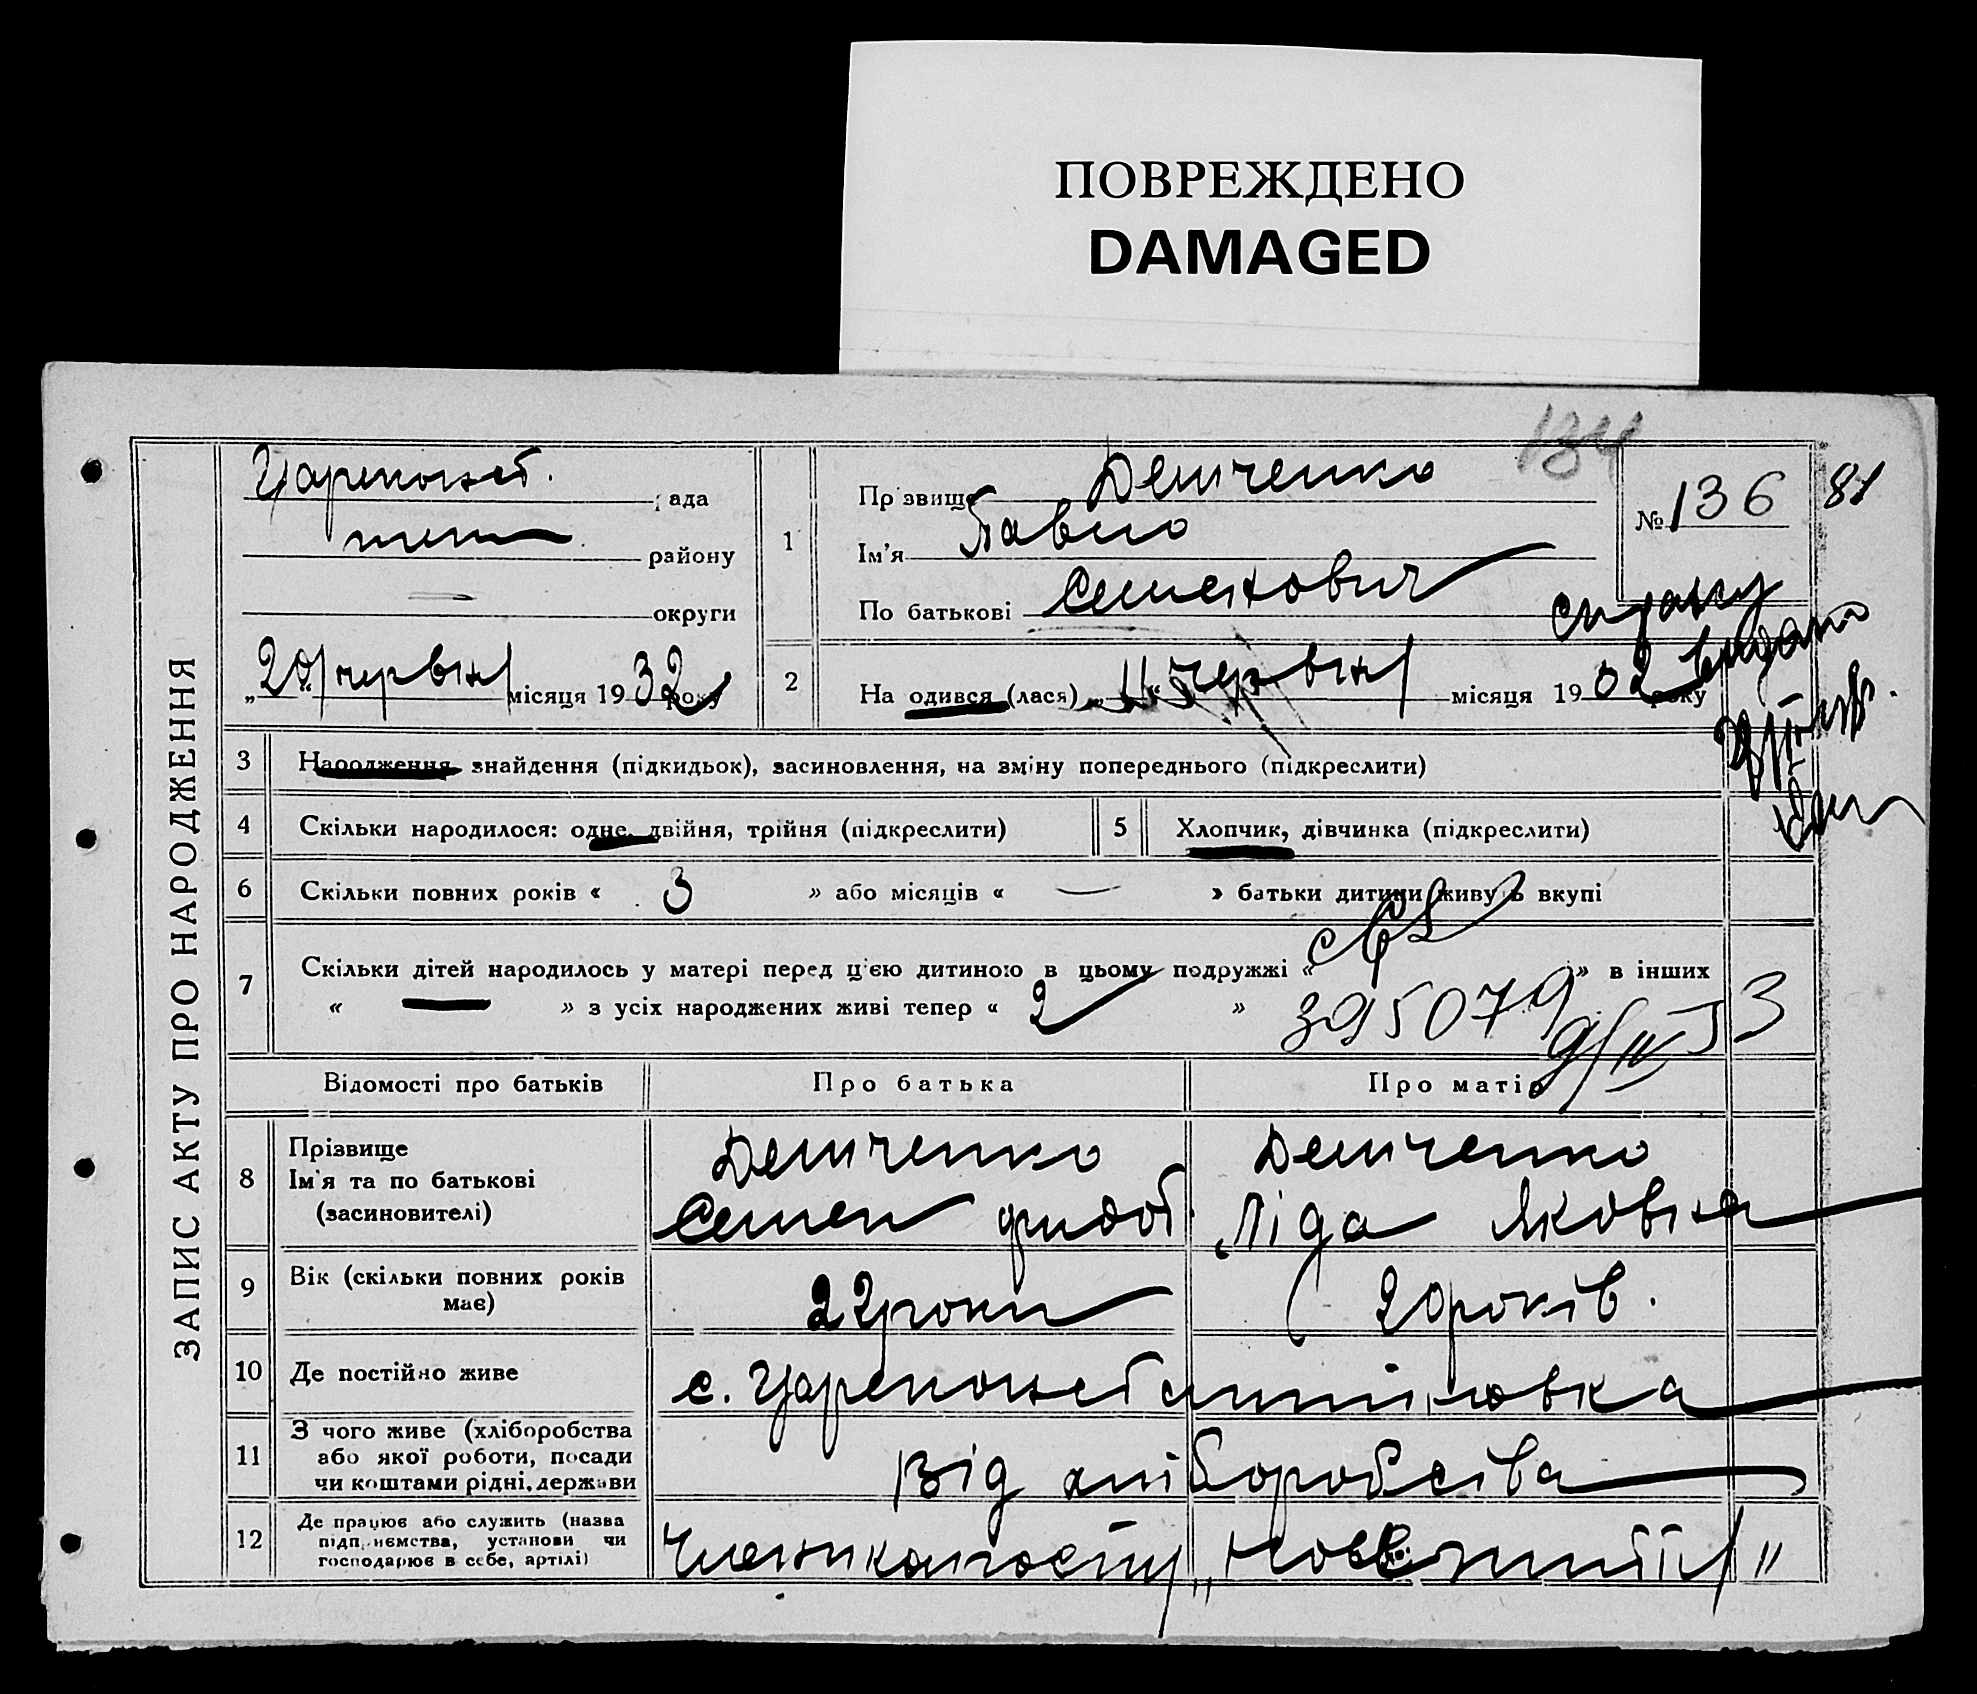 ПОВРЕЖДЕНО
DAMAGED
ЗАПИС АКТУ ПРО НАРОДЖЕННЯ
рада
району
— округи
„20“ червня місяця 1932 року
1
Прізвище Демченко
Ім'я Павло
По батькові Семенович
№ 136
81
134
2
На одився (лася) „11“ червня місяця 1932 року
справку
видано
3 Народження, знайдення (підкидьок), засиновлення, на зміну попереднього (підкреслити)
4 Скільки народилося: одне, двійня, трійня (підкреслити)
5 Хлопчик, дівчинка (підкреслити)
6 Скільки повних років « 3 » або місяців « — » батьки дитини живуть вкупі
7 Скільки дітей народилось у матері перед цією дитиною в цьому подружжі « » в інших
« — » з усіх народжених живі тепер « 2 »
395079
9/IV 53
Відомості про батьків Про батька Про матір
8 Прізвище
Ім'я та по батькові
(засиновителі)
Демченко
Семен Федот.
Демченко
Ліда Яковна
9 Вік (скільки повних років
має)
22 роки
20 років.
10 Де постійно живе
с. Царекон
11 З чого живе (хліборобства
або якої роботи, посади
чи коштами рідні, держави
Від хліборобства
12 Де працює або служить (назва
підприємства, установи чи
господарює в себе, артілі)
Члени колгоспу